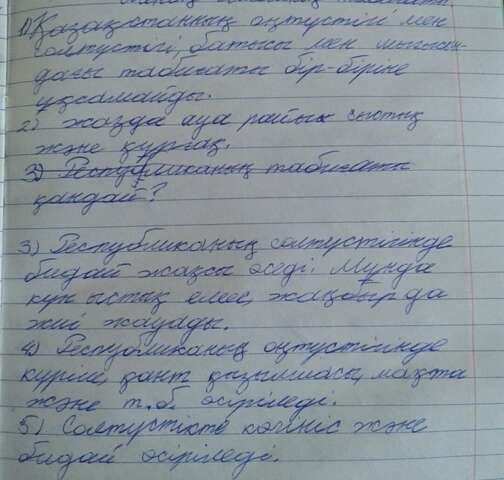 1) Қазақстанның оңтүстігі мен
солтүстігі, батысы мен шығысын-
дағы табиғаты бір-біріне
ұқсамайды.
2) Жазда ауа райы ыстық
және құрғақ.
3) Республиканың табиғаты
қандай?
3) Республиканың солтүстігінде
бидай жақсы өседі. Мұнда
күн ыстық емес, жаңбыр да
жиі жауады.
4) Республиканың оңтүстігінде
күріш, қант қызылшасы, мақта
және т.б. өсіріледі.
5) Солтүстікте көкөніс және
бидай өсіріледі.